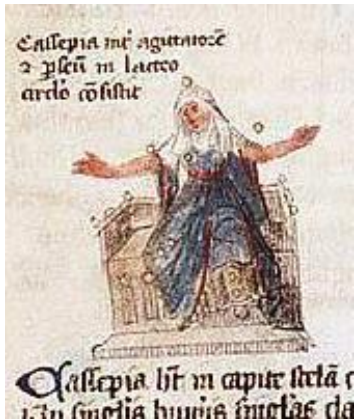 Cassepia int̄ agitatorē
⁊ ꝑseū in lacteo
circlo cōsistit
Cassepia h̄t in capite stellā
in singlis hum̄is singlas